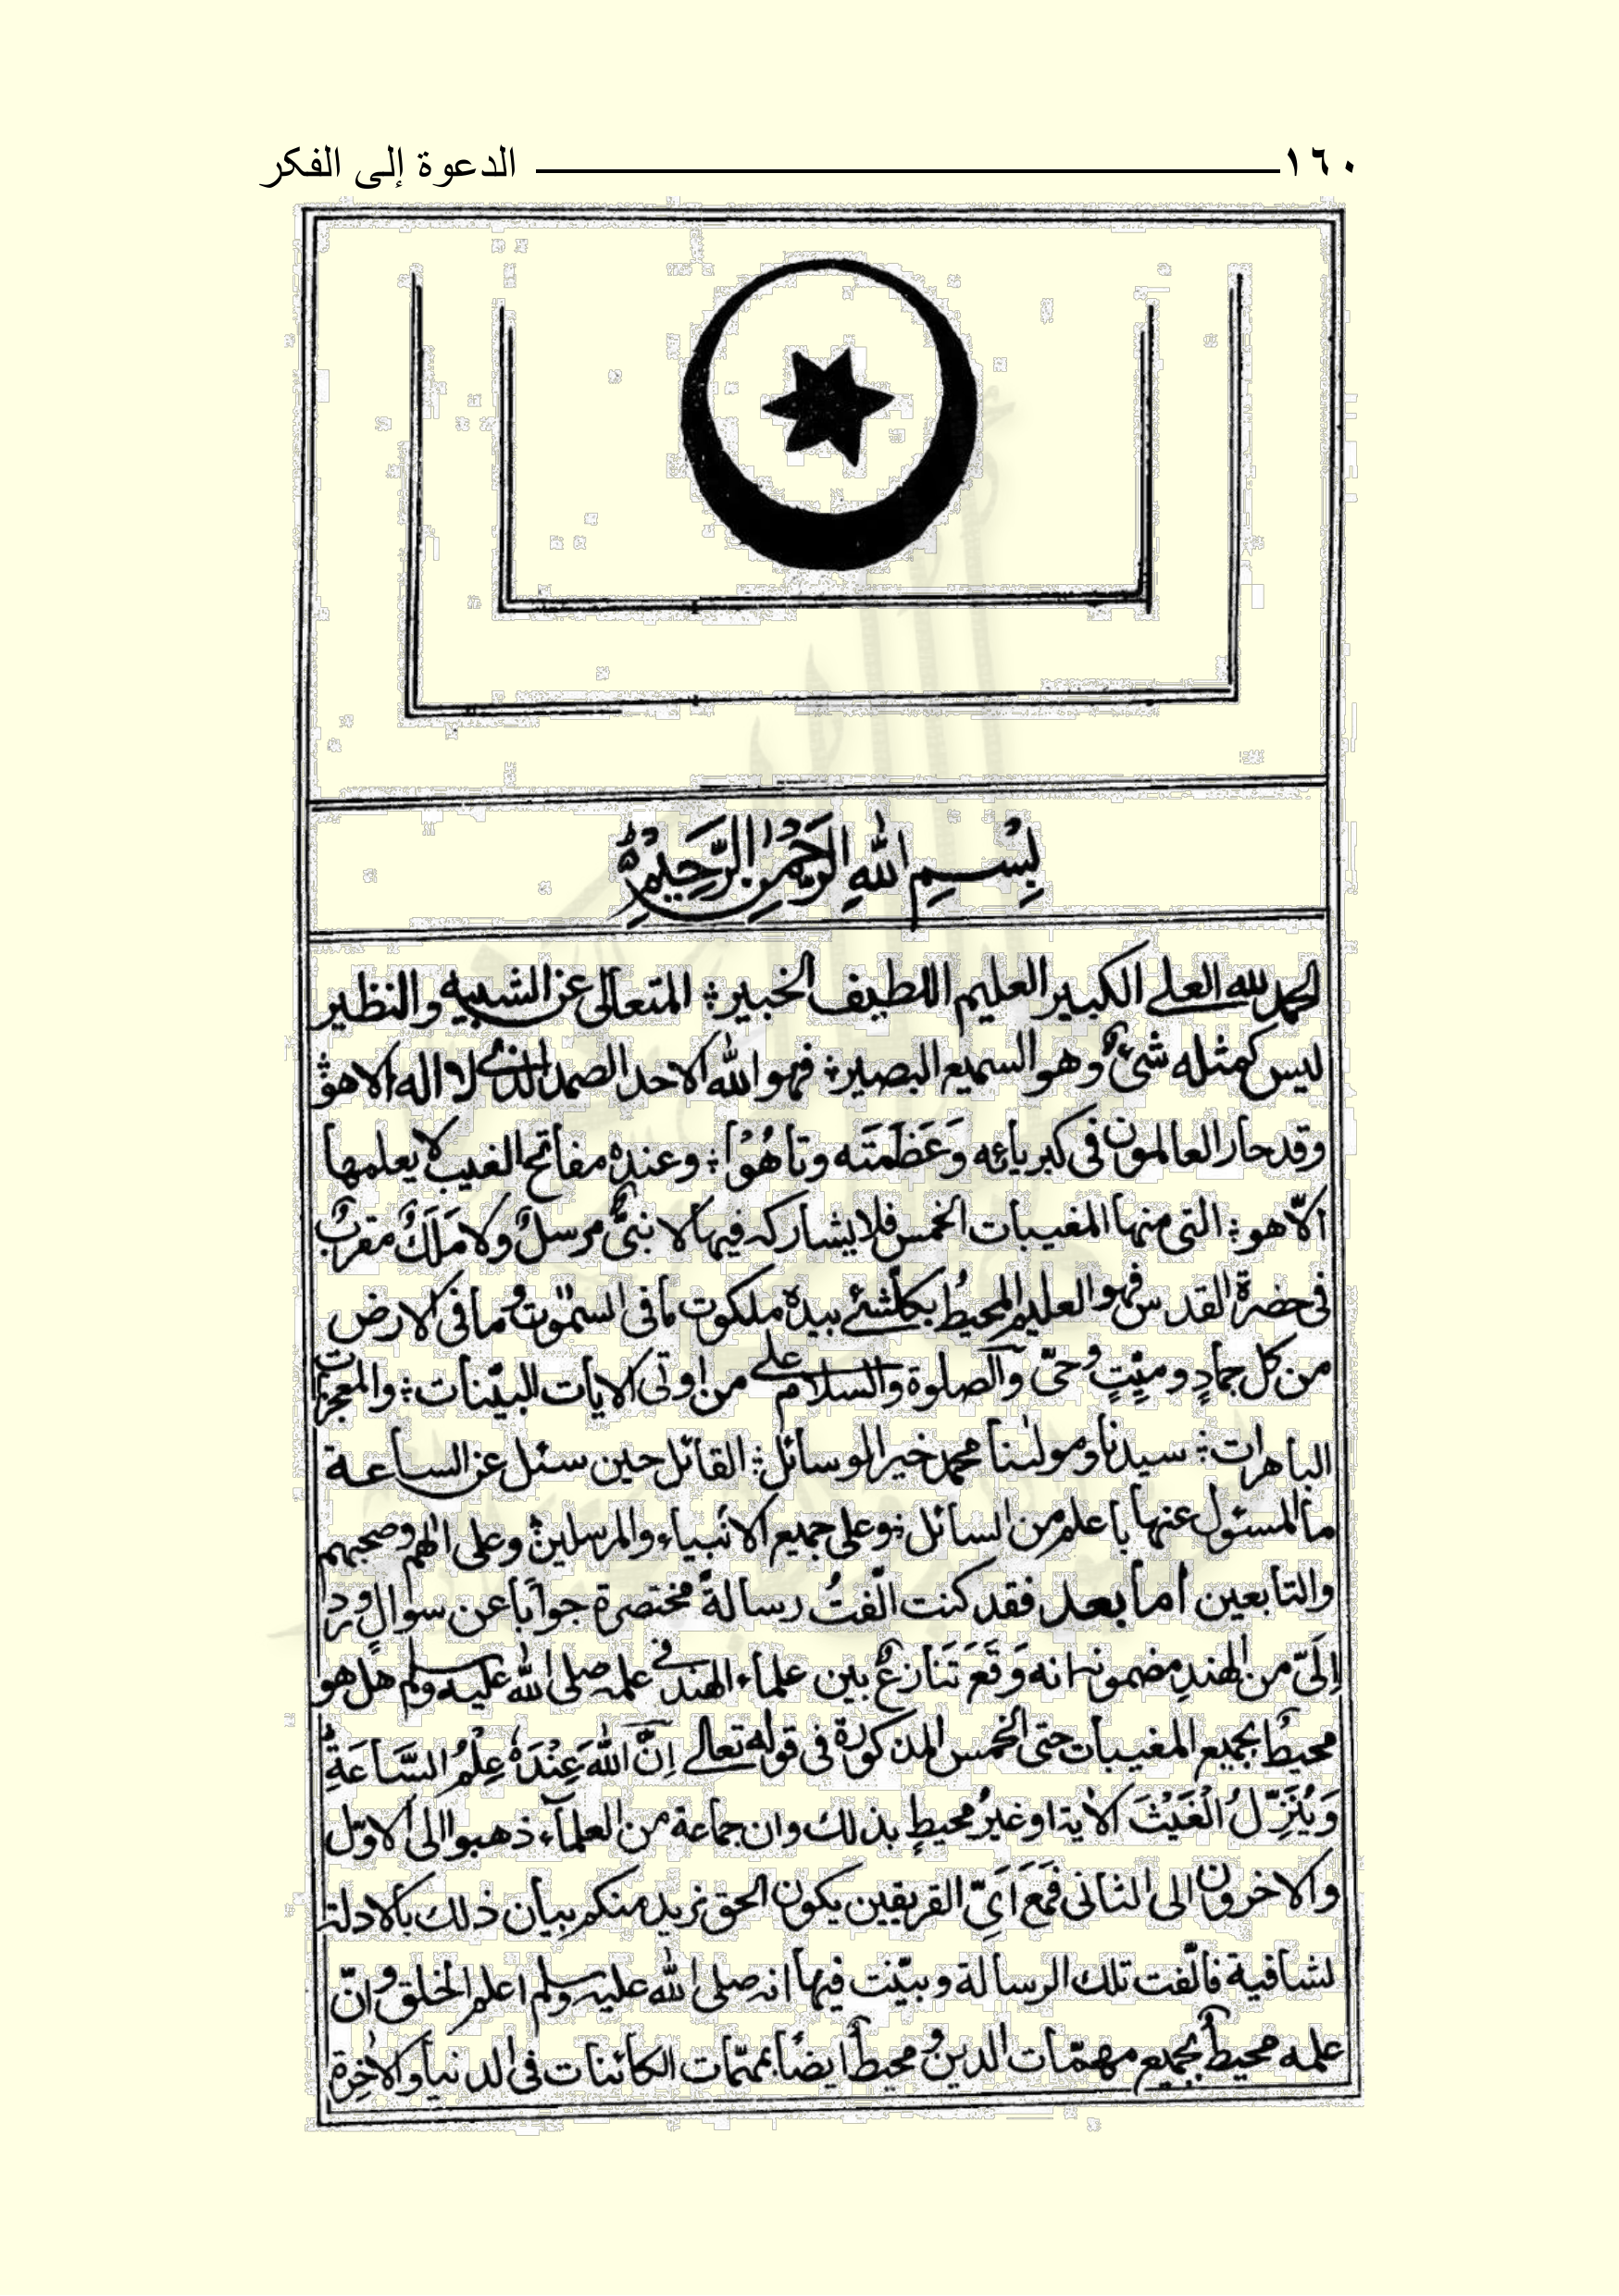 ١٦٠ الدعوة إلى الفكر
بِسْمِ اللّٰهِ الرَّحْمٰنِ الرَّحِيْمِ
الحمد لله العلے الكبير العليم اللطيف الخبير؛ المتعالى عن الشبيه والنظير
ليس كمثله شئٌ وهو السميع البصير؛ فهو اللّٰه الاحد الصمد الذے لا اله الا هو؛
وقد حار العالمون فى كبريائه وَعَظَمَتَه وتاهُوْا؛ وعنده مفاتح الغيب لا يعلمها
الّا هو؛ التى منها المغيبات الخمس فلا يشاركه فيها لا نبىٌّ مرسلٌ ولا مَلَكٌ مقربٌ
فى حضرة القدس فهو العليم المحيطُ بكل شئے بيده ملكوت ما فى السمٰوٰت وما فى الارض
من كل جمادٍ وميّتٍ وحىّ والصلوة والسلام علے من اوتى الايات البيّنات؛ والمعجزات
الباهرات؛ سيدنا ومولٰنا محمد خير الوسائل؛ القائل حين سئل عن الساعة
ما المسئول عنها باعلم من السائل؛ وعلى جميع الانبياء والمرسلين؛ وعلى اٰلهم وصحبهم
والتابعين اما بعد فقد كنت الّفتُ رسالةً مختصرة جواباً عن سوالٍ ورد
اِلَىّ من الهندِ مضمونه انه وَقَعَ تَنَازعٌ بين علماء الهند فى علمه صلى اللّٰه عليه وسلم هل هو
محيطٌ بجميع المغيبات حتى الخمس المذكورة فى قوله تعالے اِنَّ اللّٰهَ عِنْدَهٗ عِلْمُ السَّاعَةِ
وَيُنَزِّلُ الْغَيْثَ الاٰية او غيرُ محيطٍ بذلك وان جماعة من العلماء ذهبوا الى الاوّل
والاخرون الى الثانى فَمَعَ اَيِّ الفريقين يكون الحق نريد منكم بيان ذلك بالادلة
لشافية فالّفت تلك الرسالة وبيّنت فيها انه صلى اللّٰه عليه وسلم اعلم الخلق وانّ
علمه محيطٌ بجميع مهمّات الدين ومحيطٌ ايضًا بمهمّات الكائنات فى الدنيا والاٰخِرة